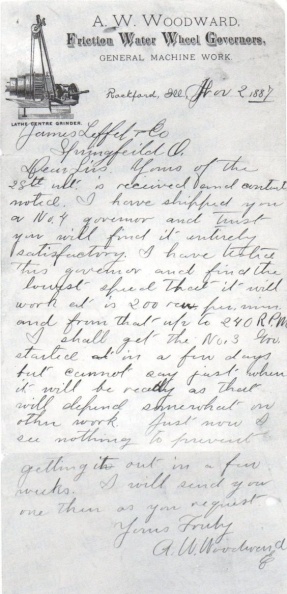 A. W. WOODWARD,
Friction Water Wheel Governors,
GENERAL MACHINE WORK.
LATHE-CENTRE GRINDER.
Rockford, Ill Nov 2 1887
James Leffel & Co
Springfeild O.
Dear Sirs. Yours of the
28th ult. is received and contents
notice. I have shipped you
a No. 4 governor and trust
you will find it entirely
satisfactory. I have tested
this governor and find the
lowest speed that it will
work at is 200 rev. per. min.
and from that up to 240 R.P.M.
I shall get the No. 3 Gov.
started in a few days
but cannot say just when
it will be ready as that
will depend somewhat on
other work just now I
see nothing to prevent
getting it out in a few
weeks. I will send you
one then as you request
Yours Truly
A. W. Woodward